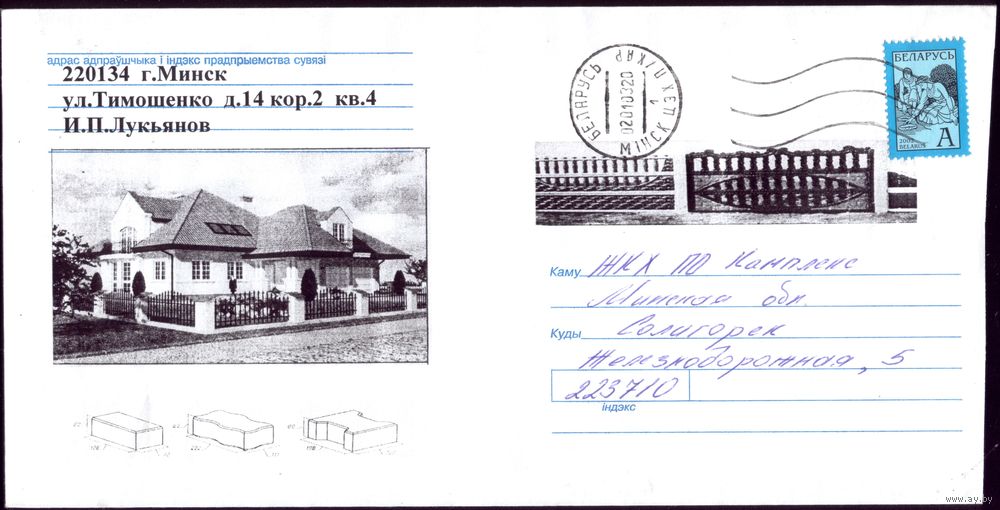 адрас адпраўшчыка і індэкс прадпрыемства сувязі
220134 г.Минск
ул.Тимошенко д.14 кор.2 кв.4
И.П.Лукьянов
БЕЛАРУСЬ
МІНСК ЦЕХ
1
02010320
БЕЛАРУСЬ
2002
BELARUS
A
Каму ЖКХ ПО Комплекс
Минская обл.
Куды Солигорск
Железнодорожная, 5
223710
індэкс
www.ay.by